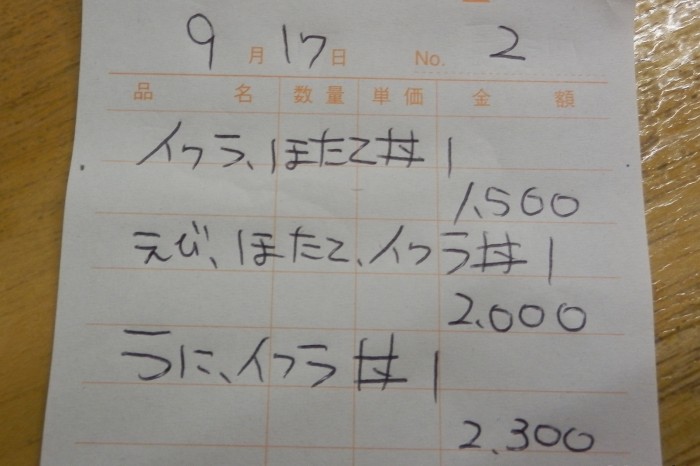 9月17日 No. 2
品名 数量 単価 金額
イクラ、ほたて丼 1
1,500
えび、ほたて、イクラ丼 1
2,000
うに、イクラ丼 1
2,300